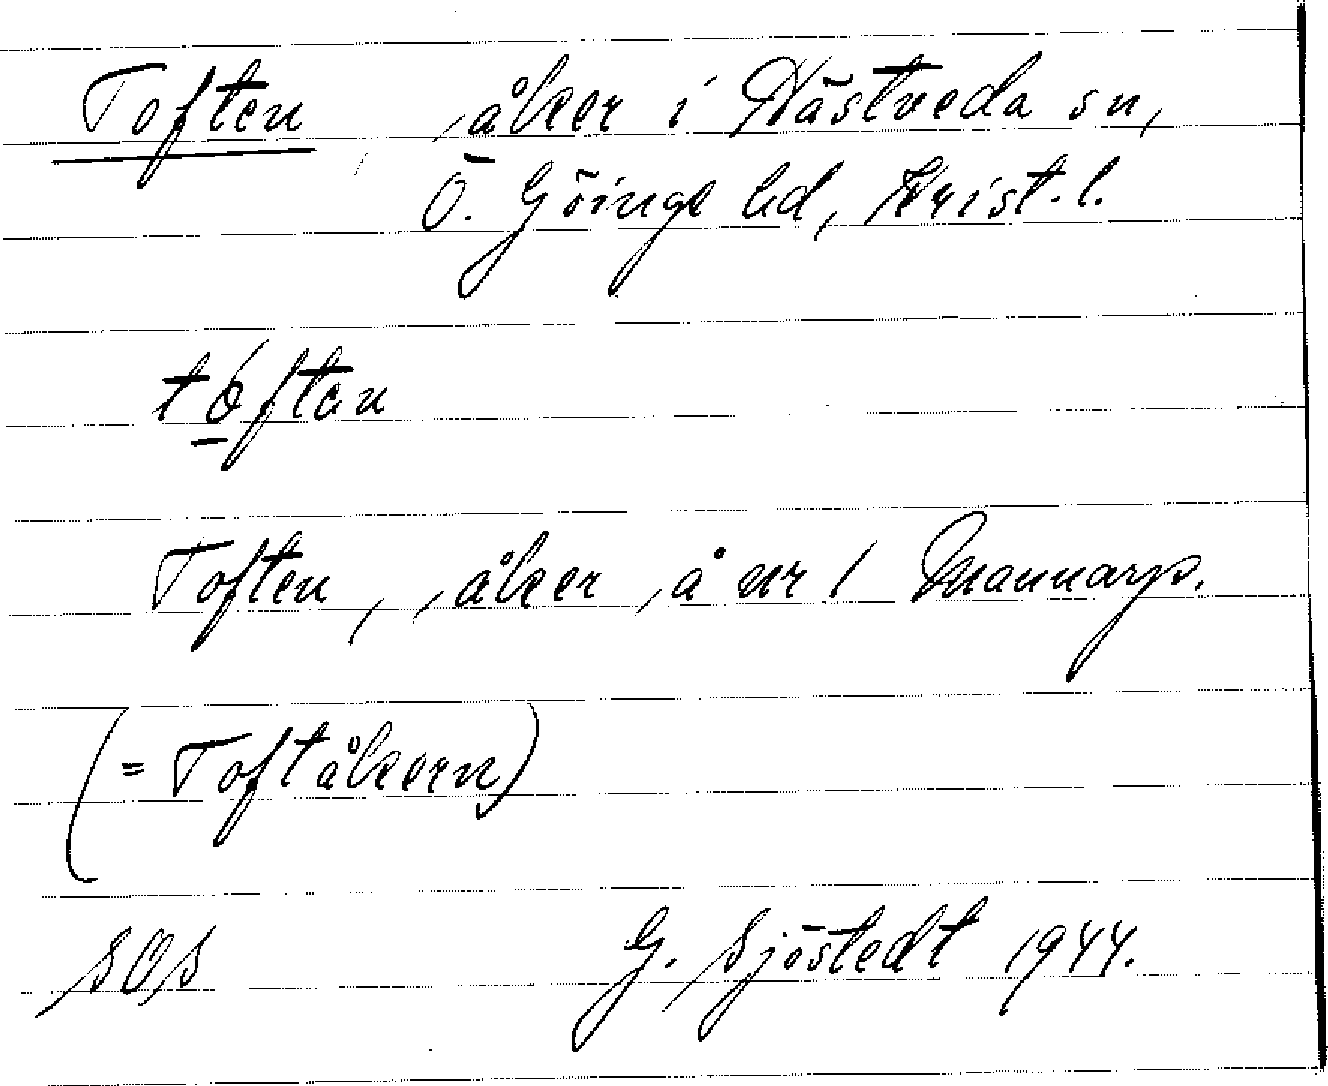 Toften, åker i Hästveda sn,
Ö. Göinge hd, Krist. l.
tóften
Toften, åker å nr 1 Mannarp.
(= Toftåkern)
SOS G. Sjöstedt 1944.